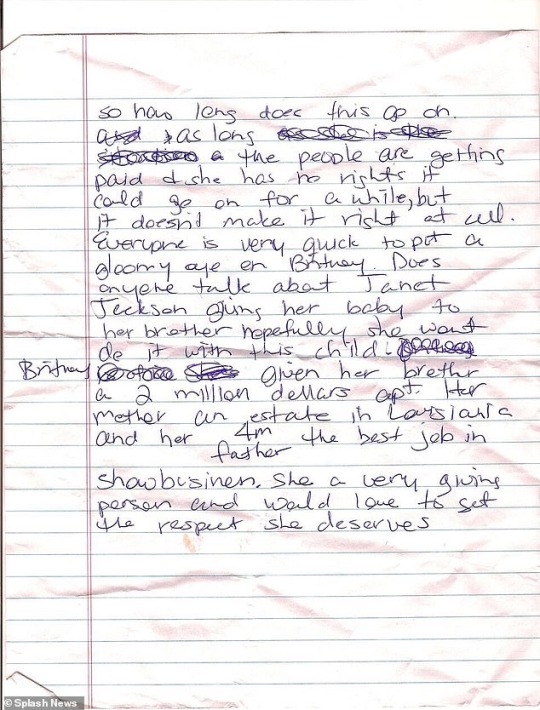 so how long does this go on.
as long
a the people are getting
paid & she has no rights it
could go on for a while, but
it doesn't make it right at all.
Everyone is very quick to put a
gloomy eye on Britney. Does
anyone talk about Janet
Jackson giving her baby to
her brother hopefully she wont
do it with this child.
Britney given her brother
a 2 million dollars apt. Her
mother an estate in Louisiana
and her father 4m the best job in
showbusiness. She a very giving
person and would love to get
the respect she deserves
© Splash News